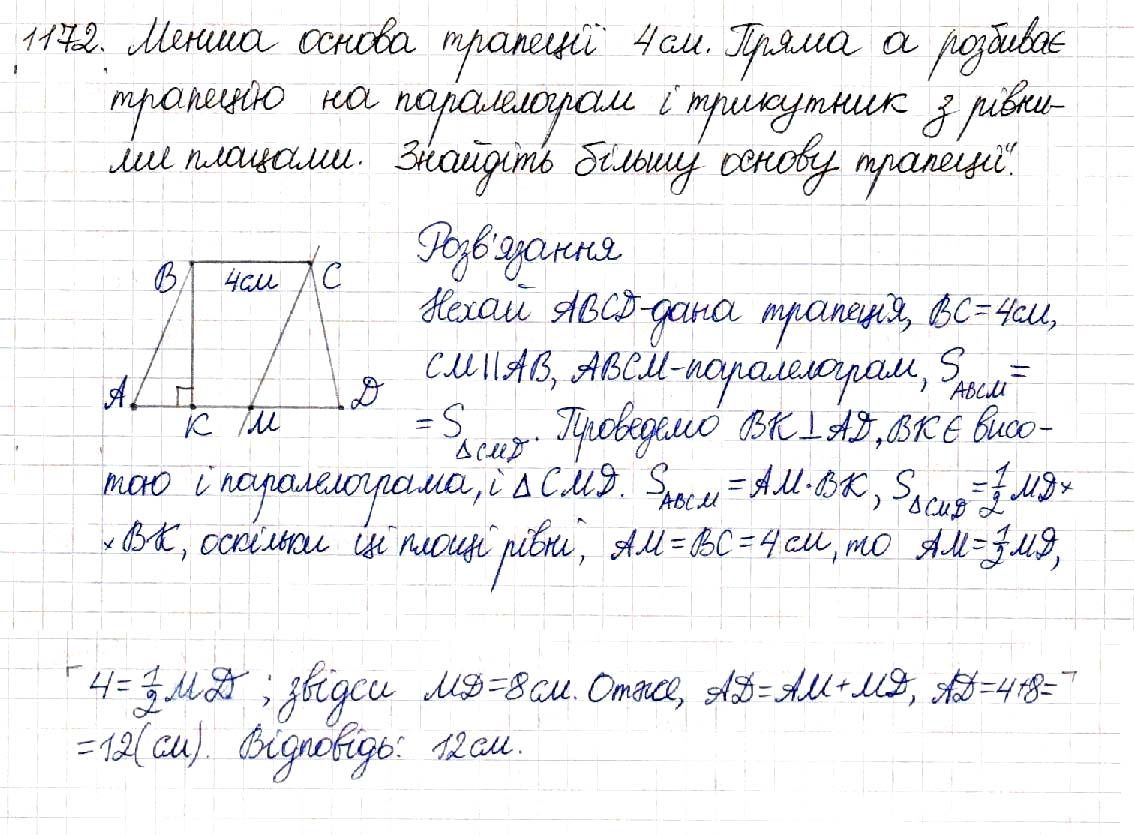 1172. Менша основа трапеції 4 см. Пряма а розбиває
трапецію на паралелограм і трикутник з рівни-
ми площами. Знайдіть більшу основу трапеції.
Розв'язання
B 4см C
A K M D
Нехай ABCD-дана трапеція, BC=4см,
CM||AB, ABCM-паралелограм, S_ABCM=
=S_ΔCMD. Проведемо BK⊥AD, BK є висо-
тою і паралелограма, і ΔCMD. S_ABCM=AM·BK, S_ΔCMD=1/2 MD×
×BK, оскільки ці площі рівні, AM=BC=4см, то AM=1/2 MD,
4=1/2 MD; звідси MD=8см. Отже, AD=AM+MD, AD=4+8=
=12(см). Відповідь: 12см.